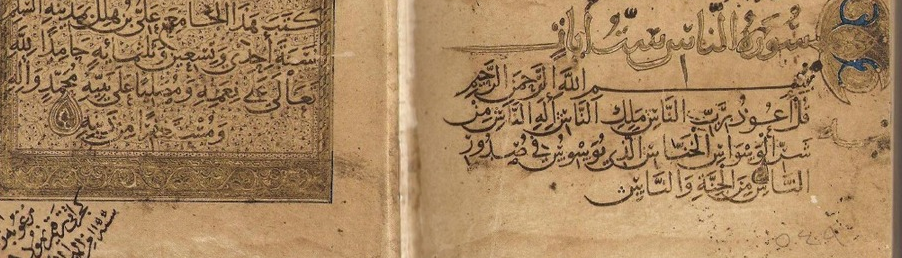 سُورَةُ النَّاسِ سِتُّ آيَاتٍ
بِسْمِ اللَّهِ الرَّحْمَنِ الرَّحِيمِ
قُلْ أَعُوذُ بِرَبِّ النَّاسِ مَلِكِ النَّاسِ إِلَهِ النَّاسِ مِنْ
شَرِّ الْوَسْوَاسِ الْخَنَّاسِ الَّذِي يُوَسْوِسُ فِي صُدُورِ
النَّاسِ مِنَ الْجِنَّةِ وَالنَّاسِ
كَتَبَ هَذَا الْجَامِعَ عَلِيُّ بْنُ هِلَالٍ بِمَدِينَةِ السَّلَامِ
سَنَةَ إِحْدَى وَتِسْعِينَ وَثَلَثِمِائَةٍ حَامِدًا لِلَّهِ
تَعَالَى عَلَى نِعَمِهِ وَمُصَلِّيًا عَلَى نَبِيِّهِ مُحَمَّدٍ وَآلِهِ
وَمُسْتَغْفِرًا مِنْ ذَنْبِهِ